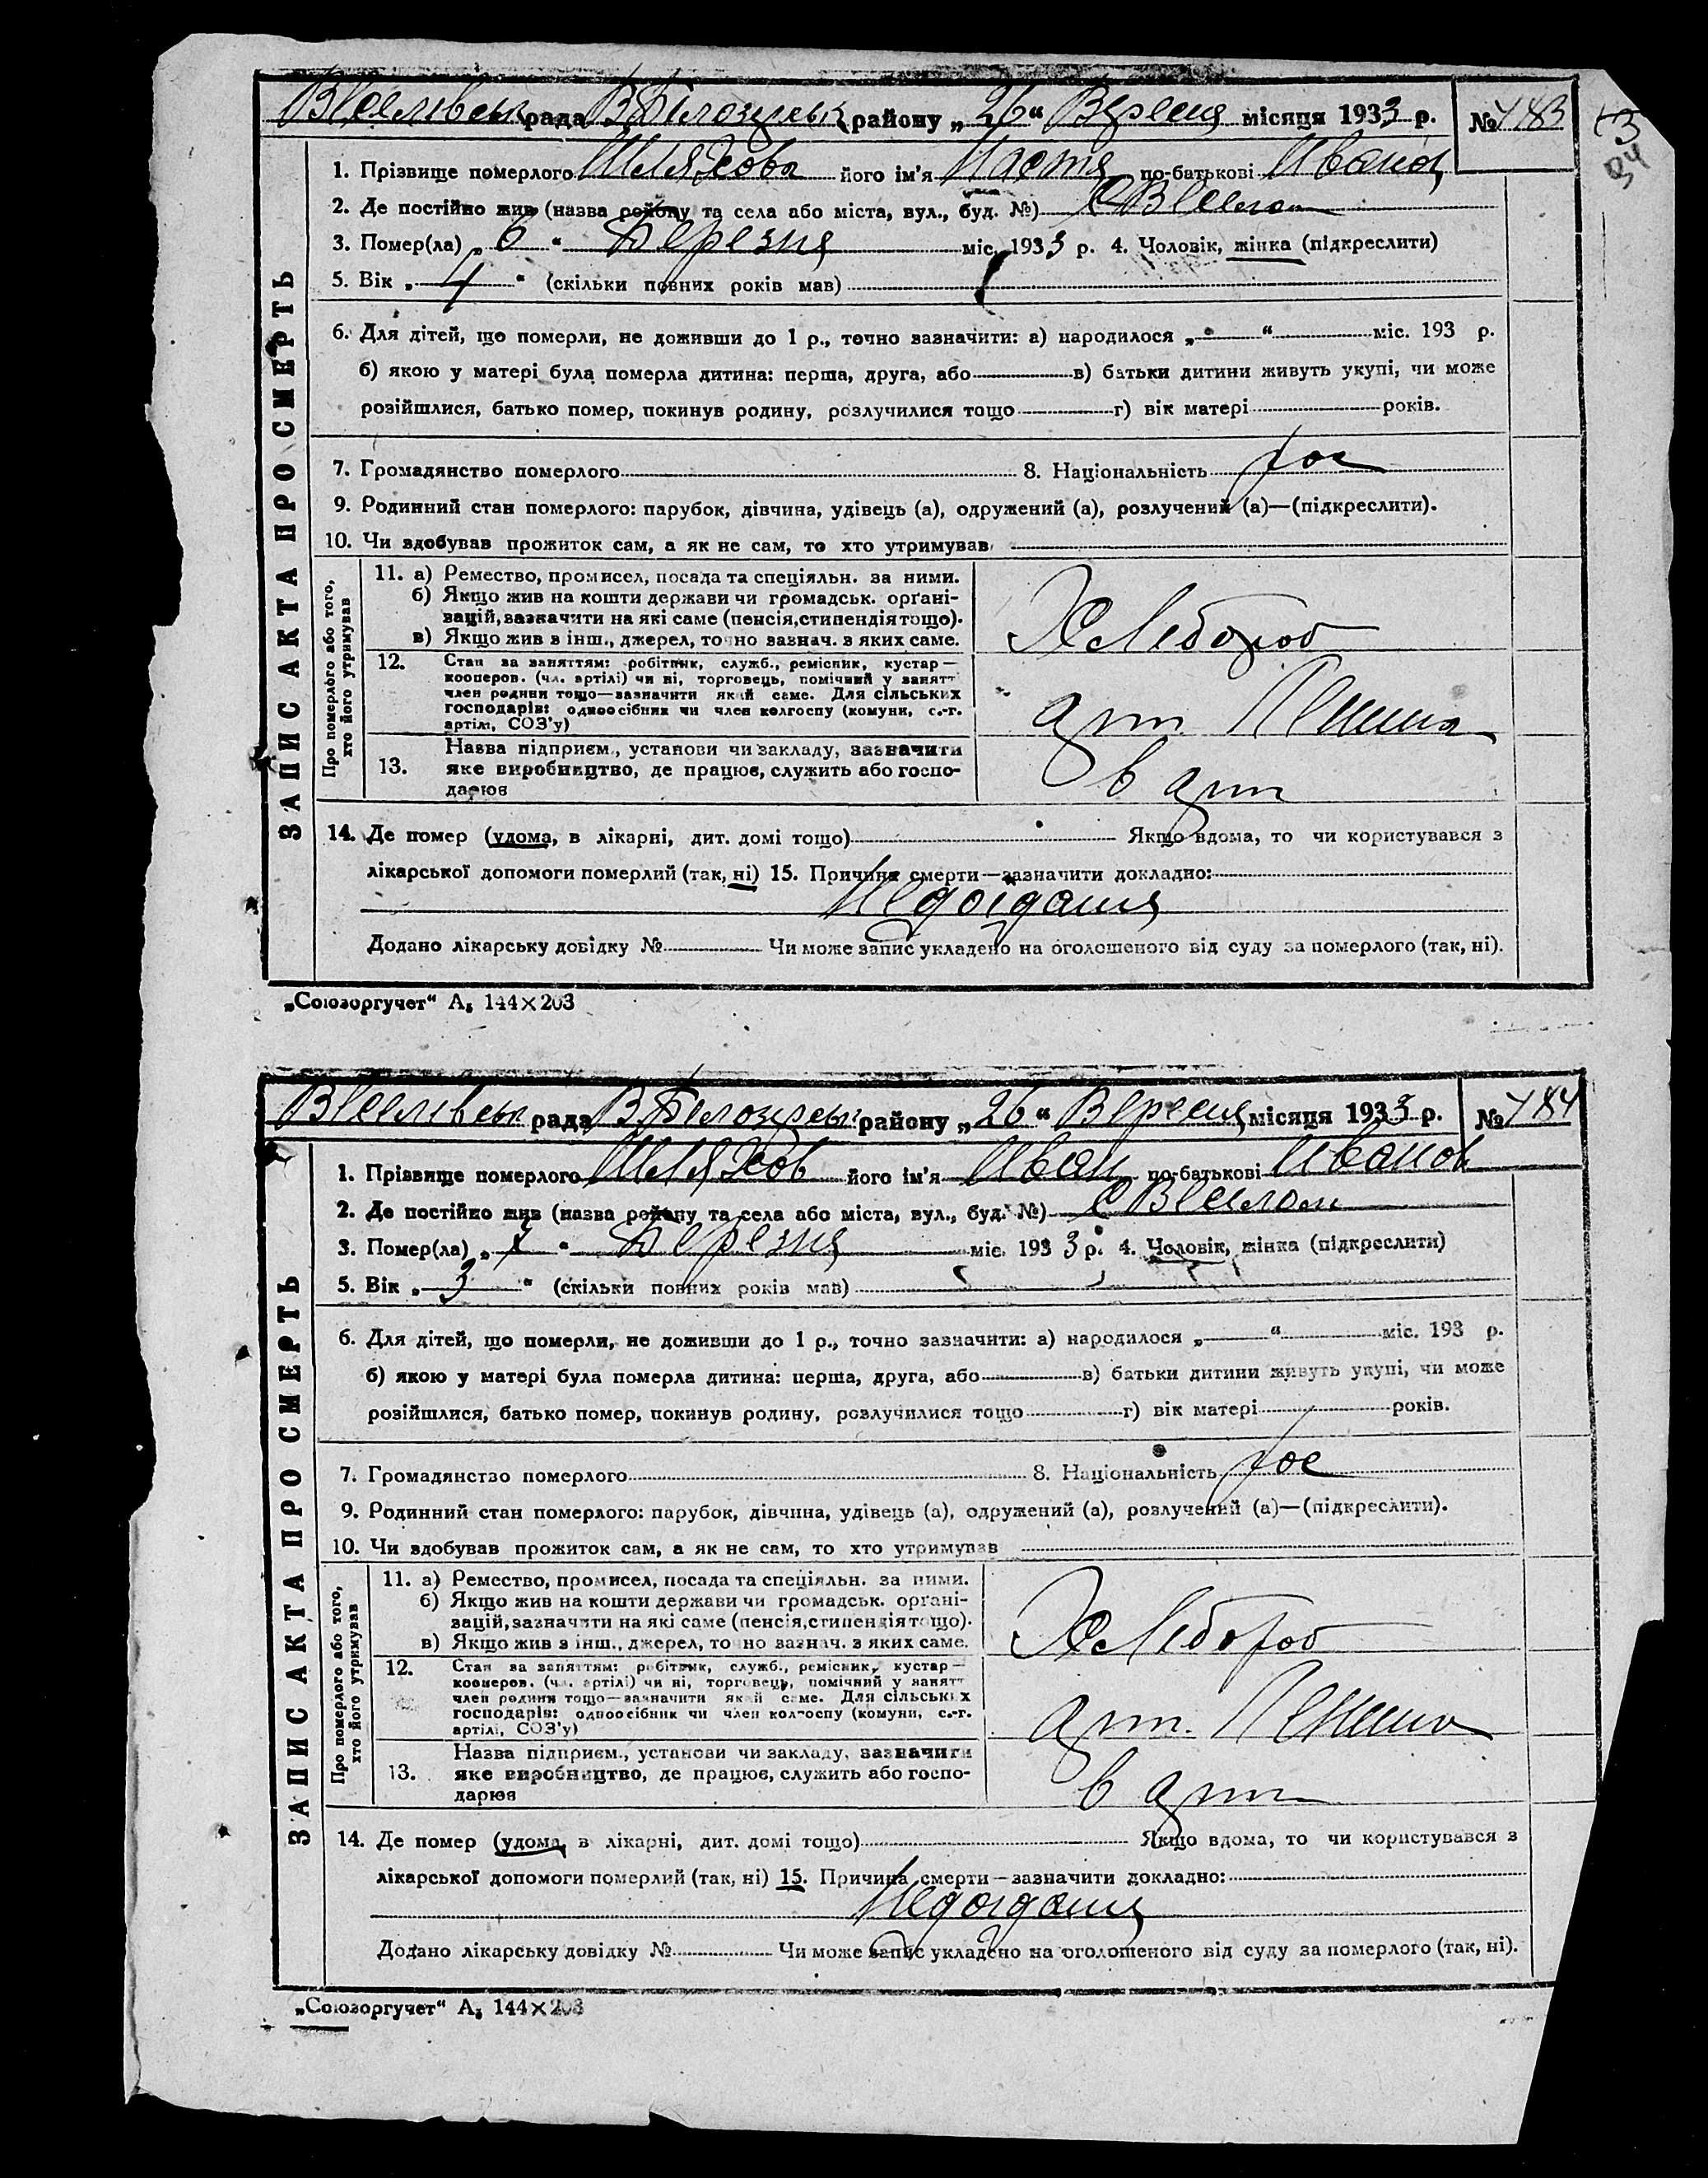 рада В Білозірськ району „ 26 “ Вересня місяця 1933 р. № 483
1. Прізвище померлого Шляхова його ім'я Настя по-батькові Иванов
2. Де постійно жив (назва району та села або міста, вул., буд. №)
3. Помер(ла) „ 6 “ Березня міс. 1933 р. 4. Чоловік, жінка (підкреслити)
5. Вік „ 4 “ (скільки повних років мав)
6. Для дітей, що померли, не доживши до 1 р., точно зазначити: а) народилося „ “ міс. 193 р.
б) якою у матері була померла дитина: перша, друга, або в) батьки дитини живуть укупі, чи може
розійшлися, батько помер, покинув родину, розлучилися тощо г) вік матері років.
7. Громадянство померлого 8. Національність рос
9. Родинний стан померлого: парубок, дівчина, удівець (а), одружений (а), розлучений (а)—(підкреслити).
10. Чи здобував прожиток сам, а як не сам, то хто утримував
ЗАПИС АКТА ПРО СМЕРТЬ
Про померлого або того,
хто його утримував
11. а) Ремество, промисел, посада та спеціяльн. за ними.
б) Якщо жив на кошти держави чи громадськ. орґані-
зацій, зазначити на які саме (пенсія, стипендія тощо).
в) Якщо жив з інш., джерел, точно зазнач. з яких саме.
Хлебороб
12. Стан за заняттям: робітник, служб., ремісник, кустар—
кооперов. (чл. артілі) чи ні, торговець, помічний у занятт
член родини тощо—зазначити який саме. Для сільських
господарів: одноосібник чи член колгоспу (комуни, с.-г.
артілі, СОЗ'у)
арт. Ленина
Назва підприєм., установи чи закладу, зазначити
13. яке виробництво, де працює, служить або госпо-
дарює
в арт
14. Де помер (удома, в лікарні, дит. домі тощо) Якщо вдома, то чи користувався з
лікарської допомоги померлий (так, ні) 15. Причина смерти—зазначити докладно:
Недоїдания
Додано лікарську довідку № Чи може запис укладено на оголошеного від суду за померлого (так, ні).
„Союзоргучет“ А5 144×203
рада В Білозірськ району „ 26 “ Вересня місяця 1933 р. № 484
1. Прізвище померлого Шляхов його ім'я Иван по-батькові Иванов
2. Де постійно жив (назва району та села або міста, вул., буд. №)
3. Помер(ла) „ 7 “ Березня міс. 1933 р. 4. Чоловік, жінка (підкреслити)
5. Вік „ 3 “ (скільки повних років мав)
6. Для дітей, що померли, не доживши до 1 р., точно зазначити: а) народилося „ “ міс. 193 р.
б) якою у матері була померла дитина: перша, друга, або в) батьки дитини живуть укупі, чи може
розійшлися, батько помер, покинув родину, розлучилися тощо г) вік матері років.
7. Громадянство померлого 8. Національність рос
9. Родинний стан померлого: парубок, дівчина, удівець (а), одружений (а), розлучений (а)—(підкреслити).
10. Чи здобував прожиток сам, а як не сам, то хто утримував
ЗАПИС АКТА ПРО СМЕРТЬ
Про померлого або того,
хто його утримував
11. а) Ремество, промисел, посада та спеціяльн. за ними.
б) Якщо жив на кошти держави чи громадськ. орґані-
зацій, зазначити на які саме (пенсія, стипендія тощо).
в) Якщо жив з інш., джерел, точно зазнач. з яких саме.
Хлебороб
12. Стан за заняттям: робітник, служб., ремісник, кустар—
кооперов. (чл. артілі) чи ні, торговець, помічний у занятт
член родини тощо—зазначити який саме. Для сільських
господарів: одноосібник чи член колгоспу (комуни, с.-г.
артілі, СОЗ'у)
арт. Ленина
Назва підприєм., установи чи закладу, зазначити
13. яке виробництво, де працює, служить або госпо-
дарює
в арт
14. Де помер (удома, в лікарні, дит. домі тощо) Якщо вдома, то чи користувався з
лікарської допомоги померлий (так, ні) 15. Причина смерти—зазначити докладно:
Недоїдания
Додано лікарську довідку № Чи може запис укладено на оголошеного від суду за померлого (так, ні).
„Союзоргучет“ А5 144×203